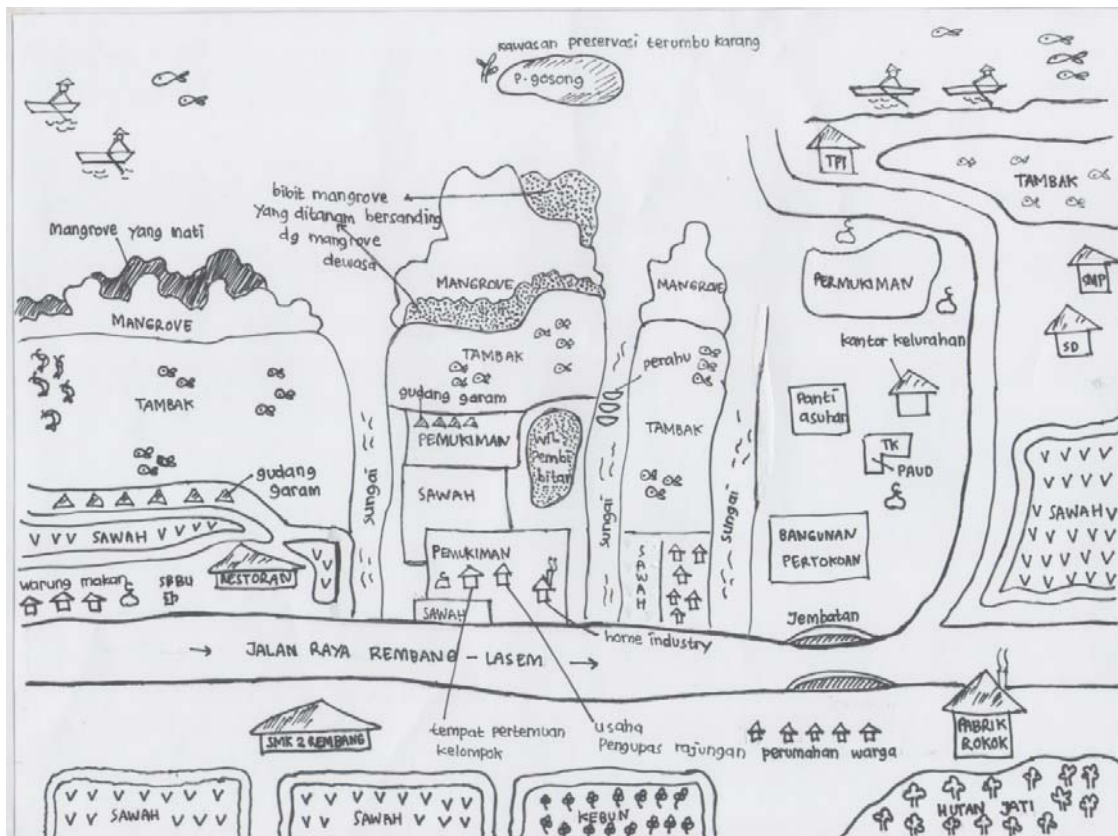 kawasan preservasi terumbu karang
P. gosong
TPI
TAMBAK
bibit mangrove
yang ditanam bersanding
dg mangrove
dewasa
Mangrove yang mati
MANGROVE
MANGROVE
MANGROVE
PERMUKIMAN
SMP
SD
kantor kelurahan
TAMBAK
perahu
gudang garam
TAMBAK
PEMUKIMAN
wil.
pembi
bitan
TAMBAK
Panti
asuhan
TK
PAUD
gudang
garam
SAWAH
sungai
sungai
sungai
SAWAH
SAWAH
BANGUNAN
PERTOKOAN
PEMUKIMAN
SAWAH
warung makan
SPBU
RESTORAN
SAWAH
home industry
Jembatan
→ JALAN RAYA REMBANG - LASEM →
SMK 2 REMBANG
tempat pertemuan
kelompok
usaha
Pengupas rajungan
perumahan warga
PABRIK
ROKOK
SAWAH
SAWAH
KEBUN
HUTAN JATI